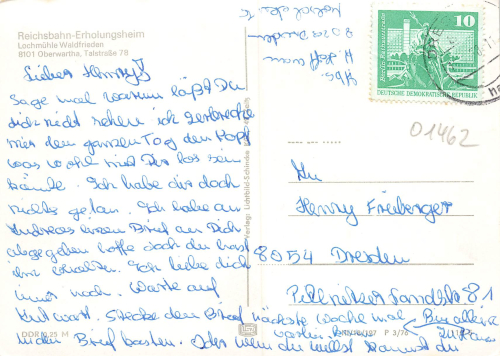 Reichsbahn-Erholungsheim
Lochmühle Waldfrieden
8101 Oberwartha, Talstraße 78
Lieber Henry!
Sage mal warum läßt Du
dich nicht sehen ich zerbreche
mir den ganzen Tag den Kopf
was wohl mit Dir los sein
könnte. Ich habe dir doch
nichts getan. Ich habe an
Andreas einen Brief an Dich
abgegeben hoffe doch du hast
ihn erhalten. Ich liebe dich
immer noch. Warte auf
Antwort. Stecke den Brief nächste Woche mal
in den Brief kasten. Oder wenn du willst kannst du
Bin alleine
zu Hause
Abs.
8020 Dresden
10
DEUTSCHE DEMOKRATISCHE REPUBLIK
01462
An
Henry Freiberger
8054 Dresden
Pillnitzer Landstr. 81
Verlag: Lichtbild-Schincke
DDR 0,25 M
P 3/76